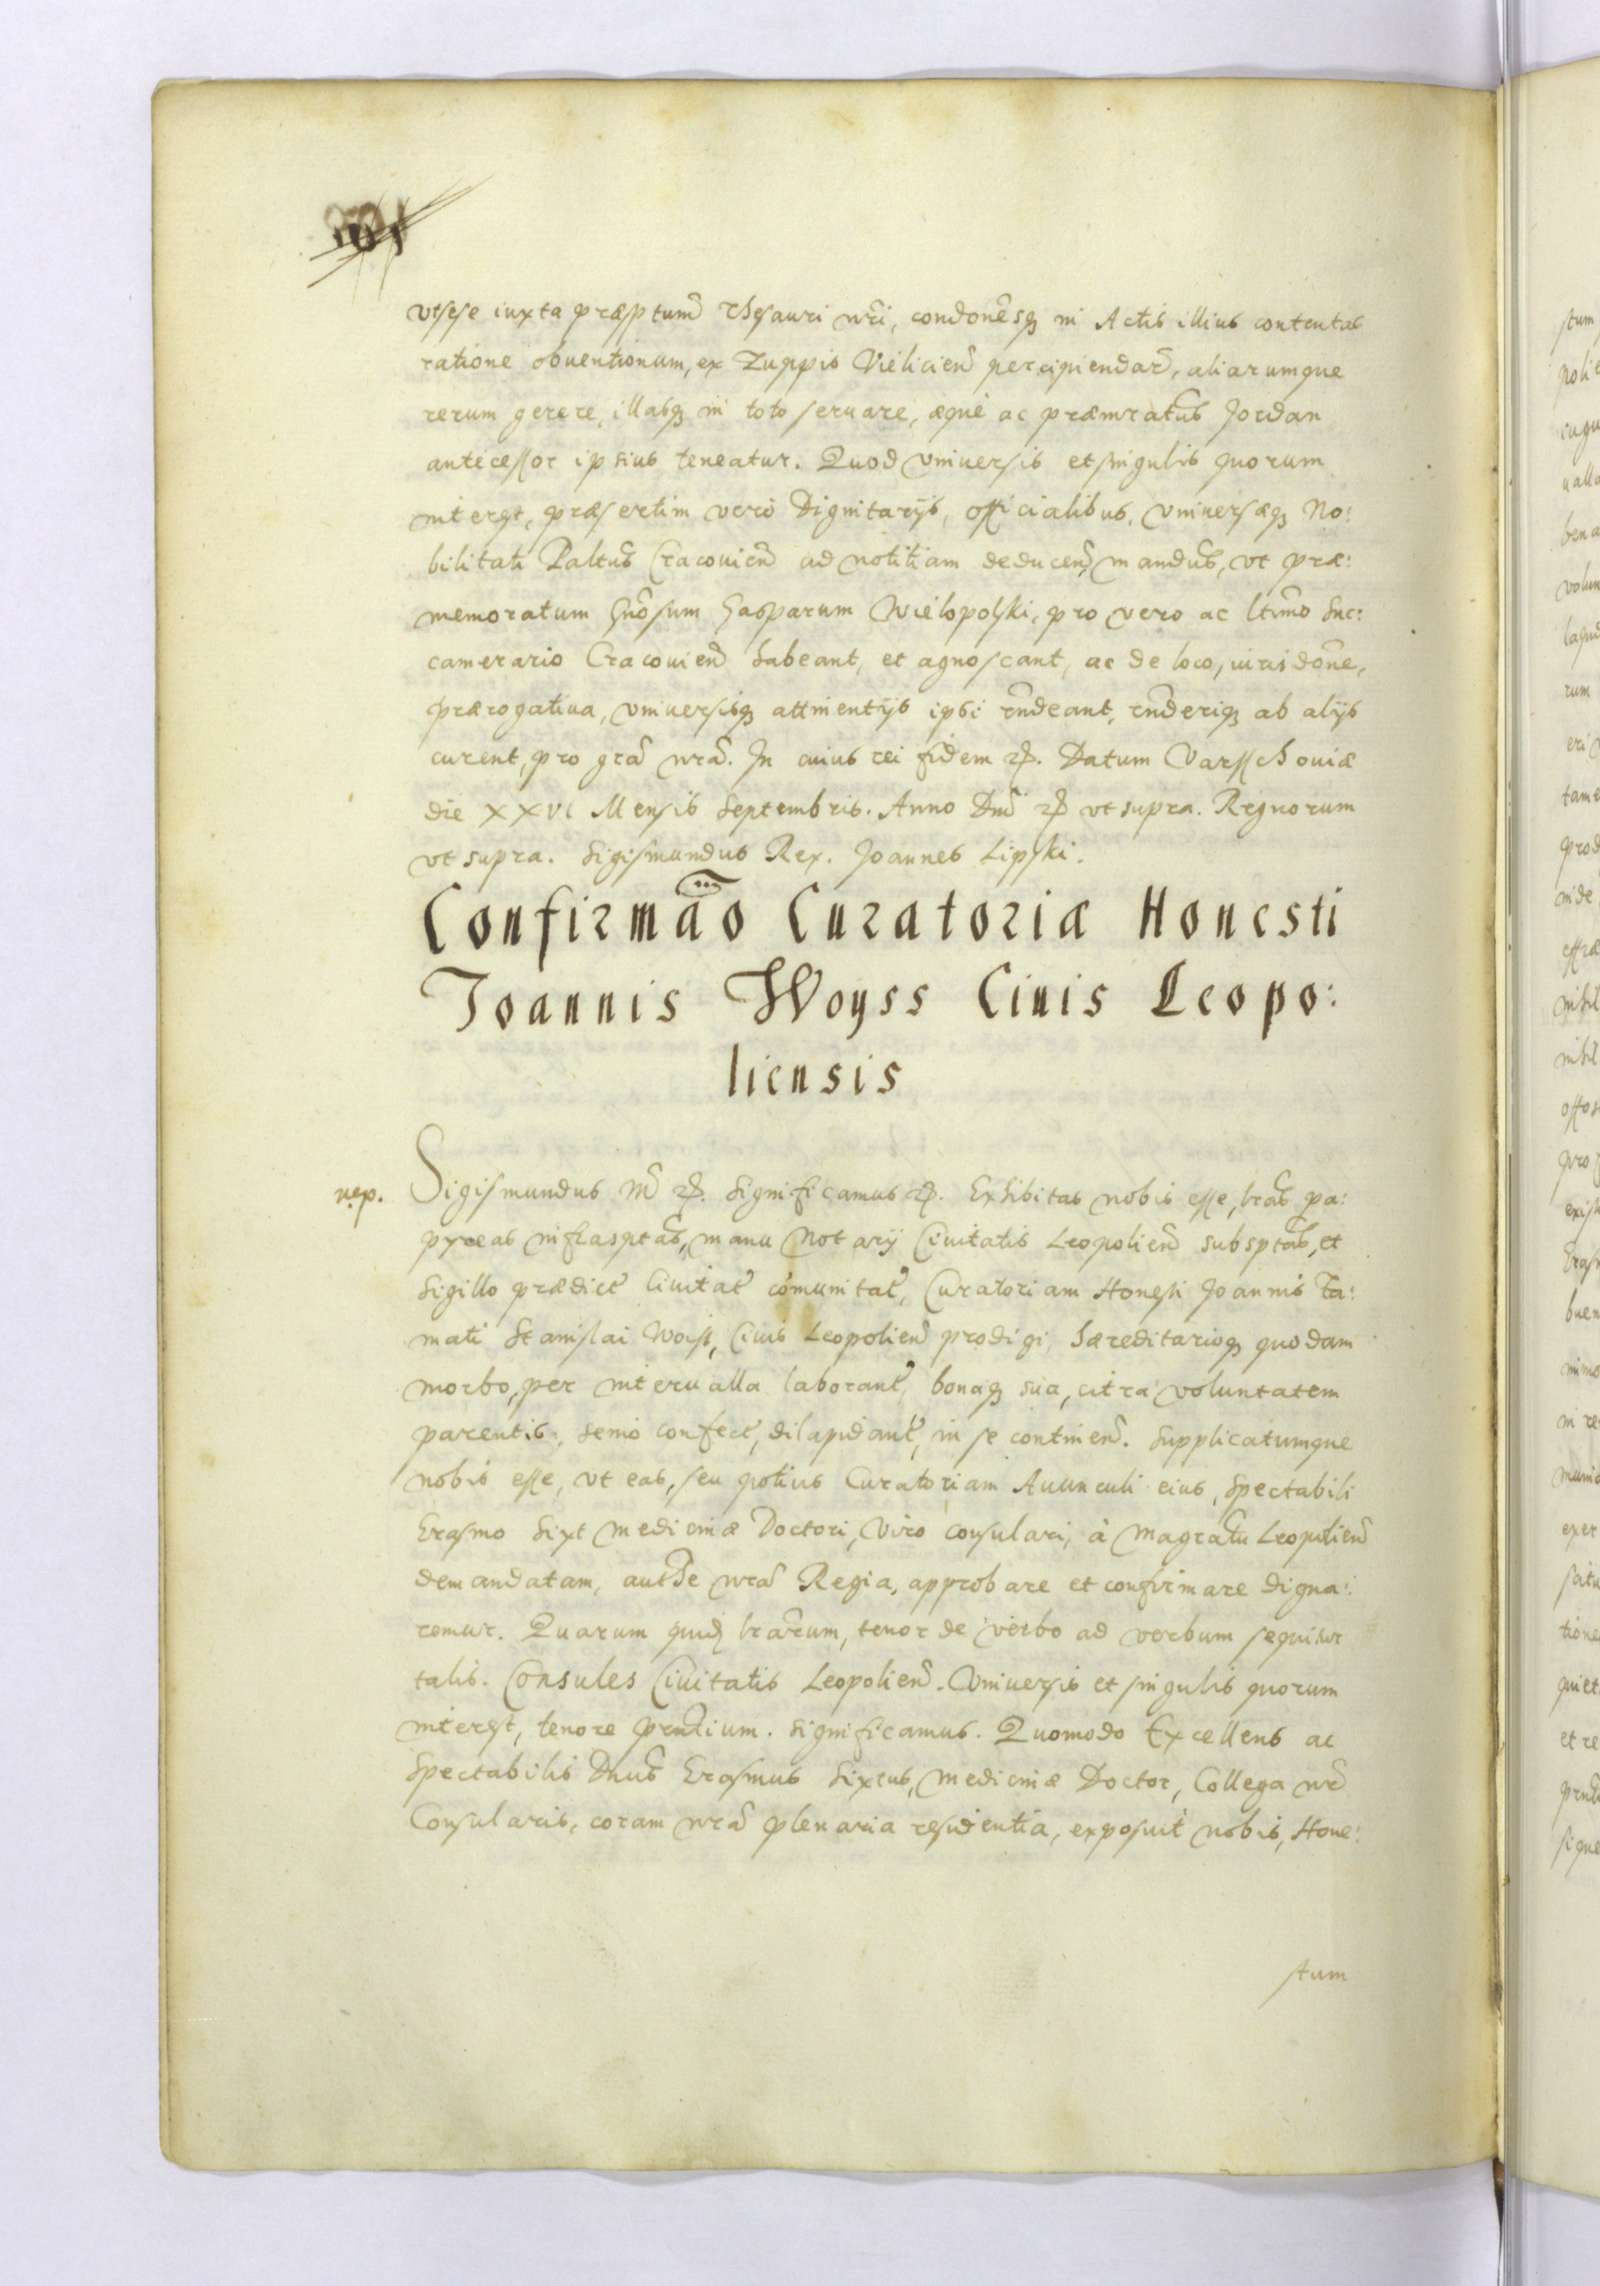 vtsese iuxta præsptum̃ thesauri nr̃i, condonẽsqȝ in Actis illius contentas
ratione obuentionum, ex Zuppis Vieliciens̃ percipiendar̃, aliarumque
rerum gerere, illasqȝ in toto seruare, æquè ac præmratũs Jordan
antecessor ipsius teneatur. Quod vniuersis et singulis quorum
interest, præsertim verò Dignitarijs, officialibus, vniuersæqȝ No:
bilitati Paltũs Cracouieñ ad notitiam deduceñ, mandũs, vt præ:
memoratum Gñosum Gasparum Wielopolski, pro vero ac ltimõ Suc:
camerario Cracouieñ habeant, et agnoscant, ac de loco, iurisdõne,
prærogatiua, vniuersisqȝ attinentijs ipsi rñdeant, rñderiqȝ ab alijs
curent, pro grã nrã. In cuius rei fidem etc. Datum Varsschouiæ
die XXVI Mensis Septembris. Anno Dñi etc vt supra. Regnorum
vt supra. Sigismundus Rex. Joannes Lipski.
Confirmão Curatoriæ Honesti
Joannis Woyss Ciuis Leopo:
liensis
Sigismundus III etc. Significamus etc. Exhibitas nobis esse, lrãs pa:
pyreas infrasptãs, manu Notarij Ciuitatis Leopolieñ subsptãs, et
Sigillo prædict̃ Ciuitat̃ cõmunitat̃, Curatoriam Honesti Joannis fa:
mati Stanislai Woist, Ciuis Leopolieñ prodigi, hæreditarioqȝ quodam
morbo, per interualla laborant̃, bonaqȝ sua, citra voluntatem
parentis, senio confect̃, dilapidant̃, in se contineñ. Supplicatumque
nobis esse, vt eas, seu potius Curatoriam Auunculi eius, Spectabili
Erasmo Sixt medicinæ Doctori, Viro consulari, à Magratũ Leopolieñ
demandatam, authẽ nrã Regia, approbare et confirmare digna:
remur. Quarum quidȝ lrãrum, tenor de verbo ad verbum sequitur
talis. Consules Ciuitatis Leopolieñ. Vniuersis et singulis quorum
interest, tenore prñtium. Significamus. Quomodo Excellens ac
Spectabilis Dnũs Erasmus Sixtus, Medicinæ Doctor, Collega nr̃
Consularis, coram nrã plenaria residentia, exposuit nobis, Hone:
stum